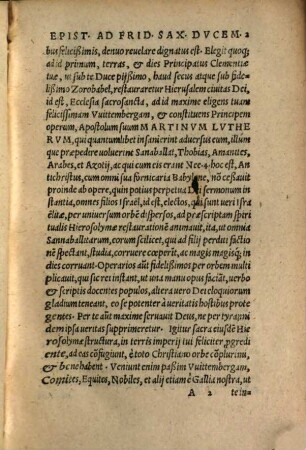 EPIST. AD FRID. SAX. DVCEM. 2
bus felicißimis, denuo reuelare dignatus est. Elegit quoq;
ad id primum, terras, & dies Principatus Clementiæ
tuæ, ut sub te Duce pijßimo, haud secus atque sub fide-
lißimo Zorobabel, restauraretur Hierusalem ciuitas Dei,
id est, Ecclesia sacrosancta, ad id maxime eligens tuam
felicissimam Vuittembergam, & constituens Principem
operum, Apostolum suum MARTINVM LVTHE
RVM, qui quantumlibet insanirent aduersus eum, illum
que præpedire uoluerint Sanaballat, Thobias, Amanites,
Arabes, et Azotij, ac qui cum eis erant Nee hoc est, An
tichristus, cum omni sua fornicaria Babylone, nõ ceßauit
proinde ab opere, quin potius perpetua Dei sermonum in
stantia, omnes filios Israël, id est, electos, qui sunt ueri Isra
ëlitæ, per uniuersum orbē dispersos, ad præscriptam spiri
tualis Hierosolymæ restaurationē animauit, ita, ut omnia
Sannaballitarum, eorum scilicet, qui ad filij perditi factio
nē spectant, studia, corruere cœperit, ac magis magisq; in
dies corruant. Operarios aũt fidelißimos per orbem multi
plicauit, qui sic rei instant, ut una manu opus faciāt, uerbo
& scriptis docentes populos, altera uero Dei eloquiorum
gladium teneant, eo se potenter à ueritatis hostibus prote
gentes. Per te aũt maxime seruauit Deus, ne per tyranni
dem ipsa ueritas supprimeretur. Igitur sacra eiusdē Hie
rosolymæ structura, in terris imperij tui feliciter pgredi
ente, ad eas cõfugiunt, è toto Christiano orbe cõplurimi,
& bene habent. Veniunt enim paßim Vuittembergam,
Comites, Equites, Nobiles, et alij etiam è Gallia nostra, ut
A 2 te in-